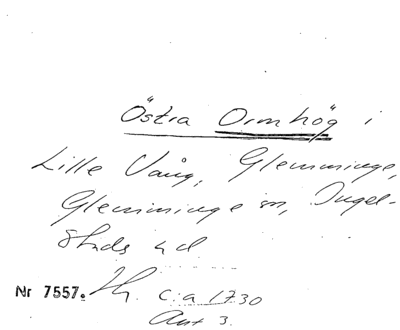 Östra Ormhög i
Lille Vång, Glemminge,
Glemminge sn, Ingel-
stads hd
Nr 7557. c:a 1730
Ant 3.